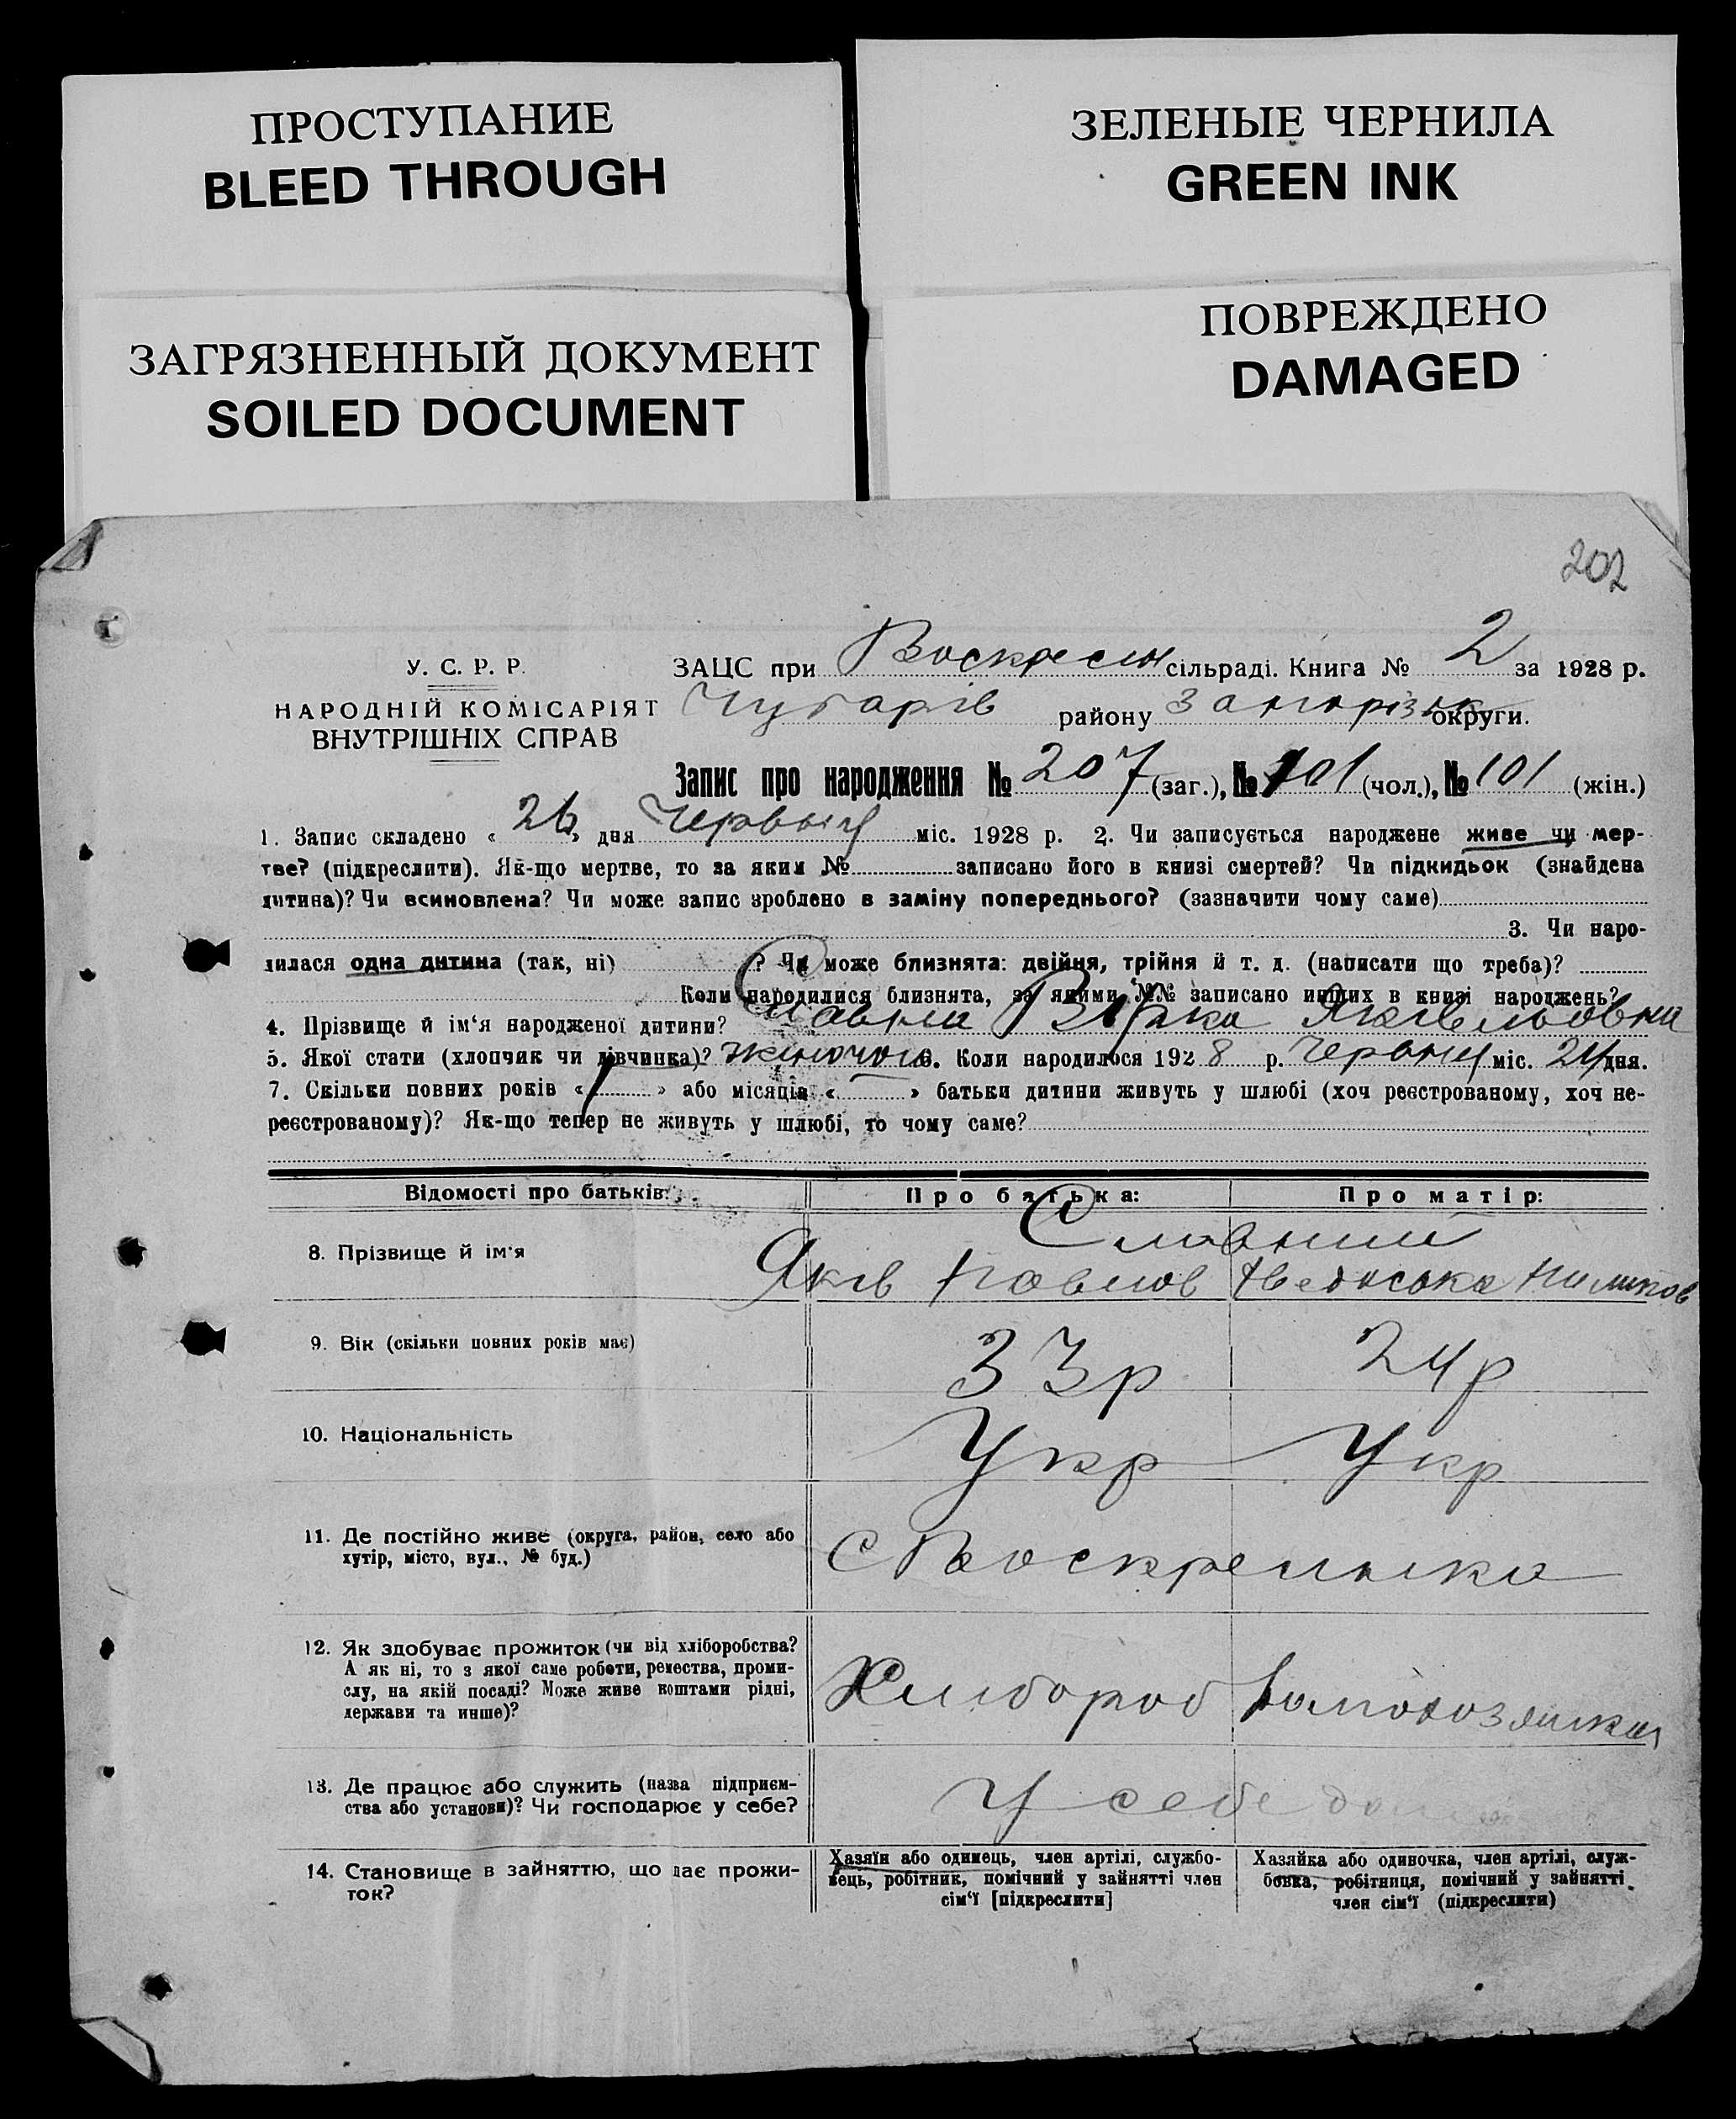 ПРОСТУПАНИЕ
BLEED THROUGH
ЗЕЛЕНЫЕ ЧЕРНИЛА
GREEN INK
ЗАГРЯЗНЕННЫЙ ДОКУМЕНТ
SOILED DOCUMENT
ПОВРЕЖДЕНО
DAMAGED
202
У. С. Р. Р.
НАРОДНІЙ КОМІСАРІЯТ
ВНУТРІШНІХ СПРАВ
ЗАЦС при Воскресен сільраді. Книга № 2 за 1928 р.
Чубарів району Запоріжж округи.
Запис про народження № 207 (заг.), № 101 (чол.), № 101 (жін.)
1. Запис складено « 26 » дня Червня міс. 1928 р. 2. Чи записується народжене живе чи мер-
тве? (підкреслити). Як-що мертве, то за яким № записано його в книзі смертей? Чи підкидьок (знайдена
дитина)? Чи всиновлена? Чи може запис зроблено в заміну попереднього? (зазначити чому саме)
3. Чи наро-
дилася одна дитина (так, ні) ? Чи може близнята: двійня, трійня й т. д. (написати що треба)?
Коли народилися близнята, за якими №№ записано инших в книзі народжень?
4. Прізвище й ім‘я народженої дитини? Славна Яківльовна
5. Якої стати (хлопчик чи дівчинка)? жіночої 6. Коли народилося 1928 р. Червня міс. 24 дня.
7. Скільки повних років « » або місяців « » батьки дитини живуть у шлюбі (хоч реєстрованому, хоч не-
реєстрованому)? Як-що тепер не живуть у шлюбі, то чому саме?
Відомості про батьків: Про батька: Про матір:
8. Прізвище й ім‘я Славний
Яків Павлов Хведоська Пилипов
9. Вік (скільки повних років має) 33р 24р
10. Національність Укр Укр
11. Де постійно живе (округа, район, село або
хутір, місто, вул., № буд.) С Воскресенка
12. Як здобуває прожиток (чи від хліборобства?
А як ні, то з якої саме роботи, ремества, проми-
слу, на якій посаді? Може живе коштами рідні,
держави та инше)? Хлибороб домохозяйка
13. Де працює або служить (назва підприєм-
ства або установи)? Чи господарює у себе? У себе
14. Становище в зайняттю, що дає прожи-
ток?
Хазяїн або одинець, член артілі, службо-
вець, робітник, помічний у зайнятті член
сім‘ї [підкреслити]
Хазяйка або одиночка, член артілі, служ-
бовка, робітниця, помічний у зайнятті
член сім‘ї (підкреслити)